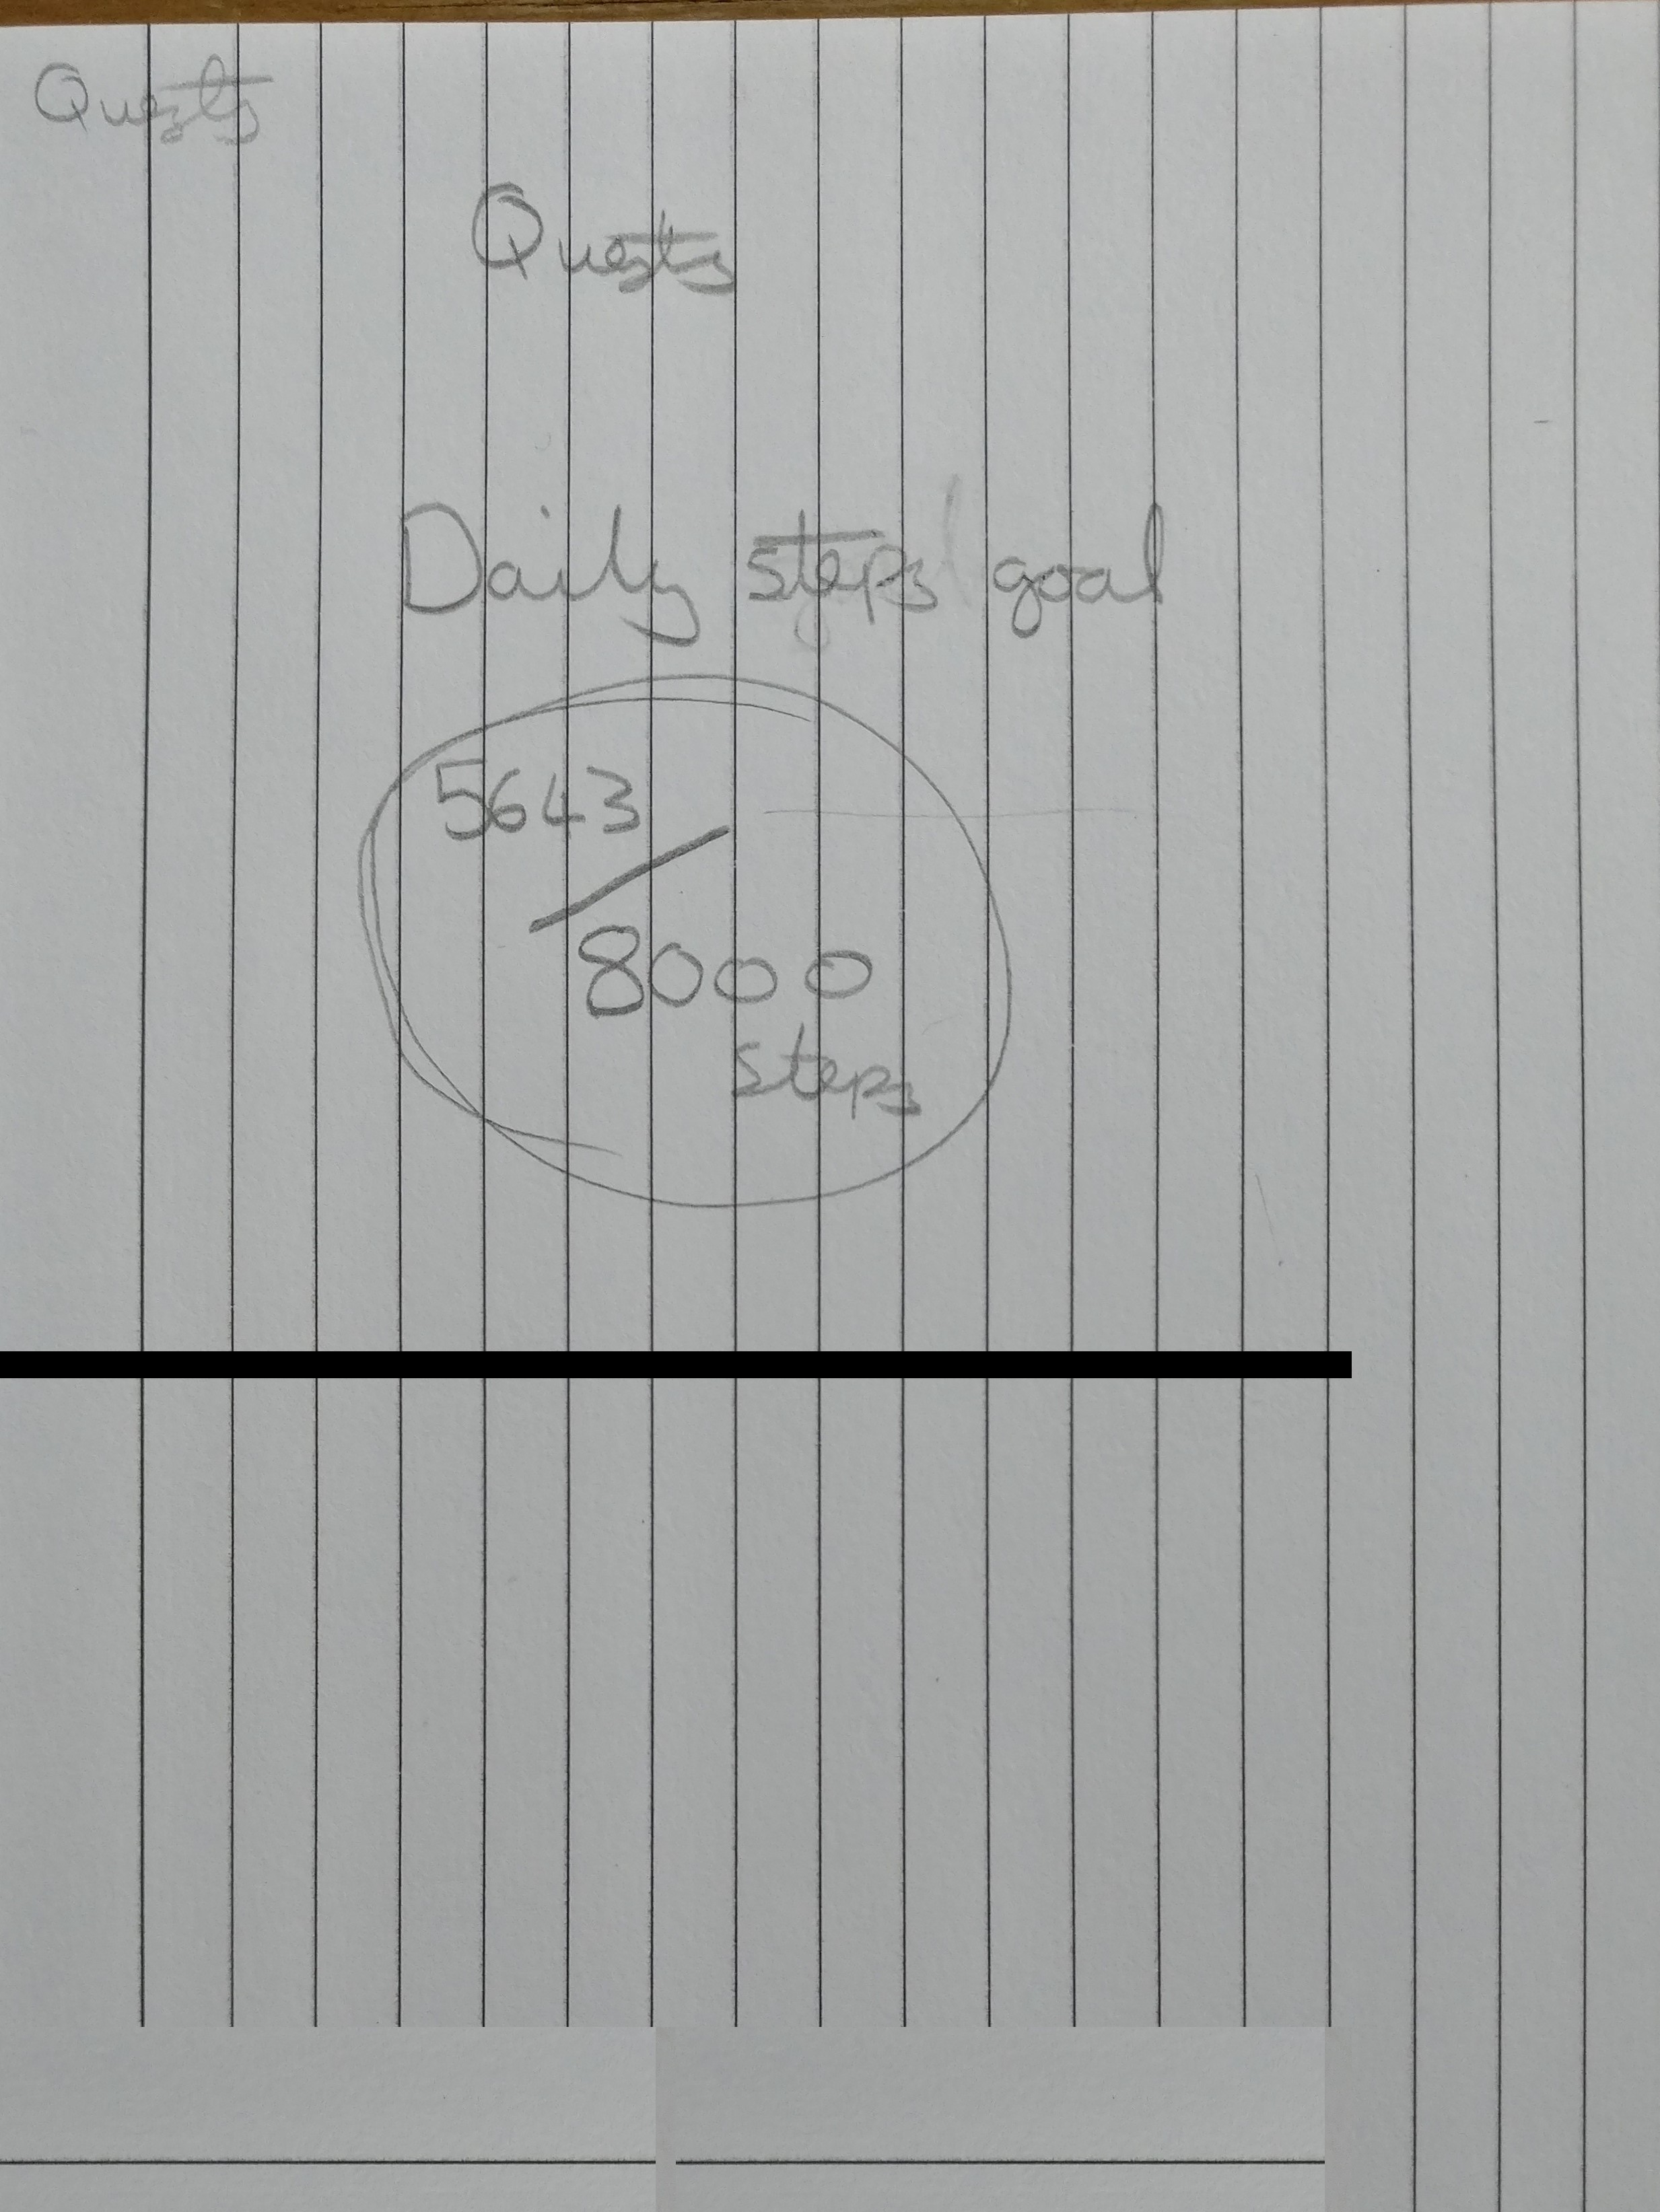 Quests
Quests
Daily steps goal
5643
/
8000
steps